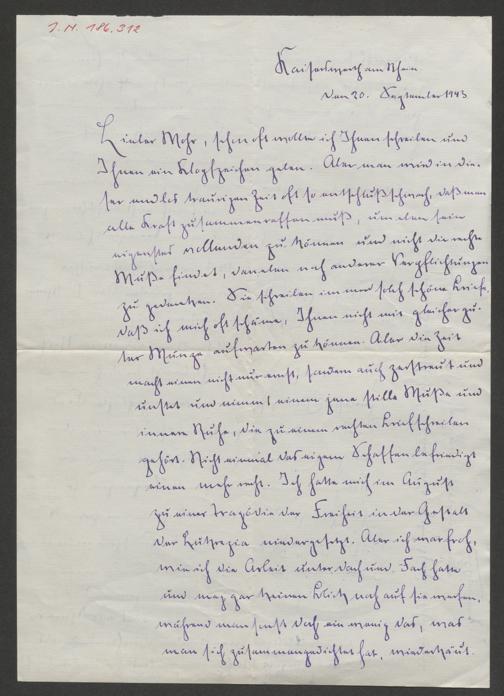 I.N. 186.312
Kaiserswerth am Rhein
den 20. September 1943
Lieber Mohr, schon oft wollte ich Ihnen schreiben und
Ihnen ein Klopfzeichen geben. Aber man wird in die-
ser endlos traurigen Zeit oft so entschlußschwach, daß man
alle Kraft zusammenraffen muß, um eben sein
eigenstes vollenden zu können und nicht die rechte
Muße findet, daneben noch anderer Verpflichtungen
zu gedenken. Sie schreiben immer solch schöne Briefe,
daß ich mich oft schäme, Ihnen nicht mit gleicher gu-
ter Münze aufwarten zu können. Aber die Zeit
macht einen nicht nur ernst, sondern auch zerstreut und
unstet und nimmt einem jene stille Muße und
innere Ruhe, die zu einem rechten Briefschreiben
gehört. Nicht einmal das eigene Schaffen befriedigt
einen mehr recht. Ich hatte mich im August
zu einer Tragödie der Freiheit in der Gestalt
der Lukrezia niedergesetzt. Aber ich war froh,
wie ich die Arbeit unter Dach und Fach hatte
und mag gar keinen Blick noch auf sie werfen,
während man sonst doch ein wenig das, was
man sich zusammengedichtet hat, wiederkäut.